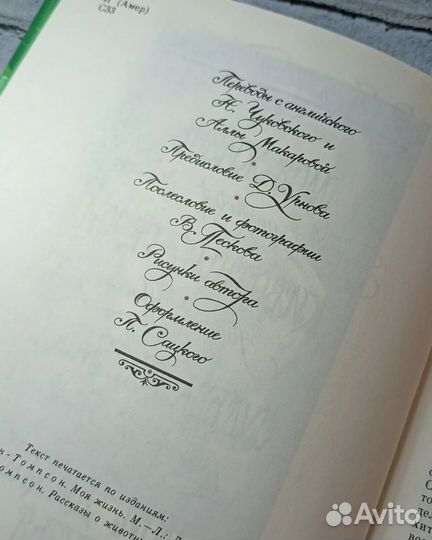 И (Амер)
С33
Переводы с английского
Н. Чуковского и
Аллы Макаровой
Предисловие Д. Урнова
Послесловие и фотографии
В. Пескова
Рисунки автора
Оформление
П. Сацкого
Текст печатается по изданиям:
Томпсон. Моя жизнь. М.—Л.;
Рассказы о
Avito